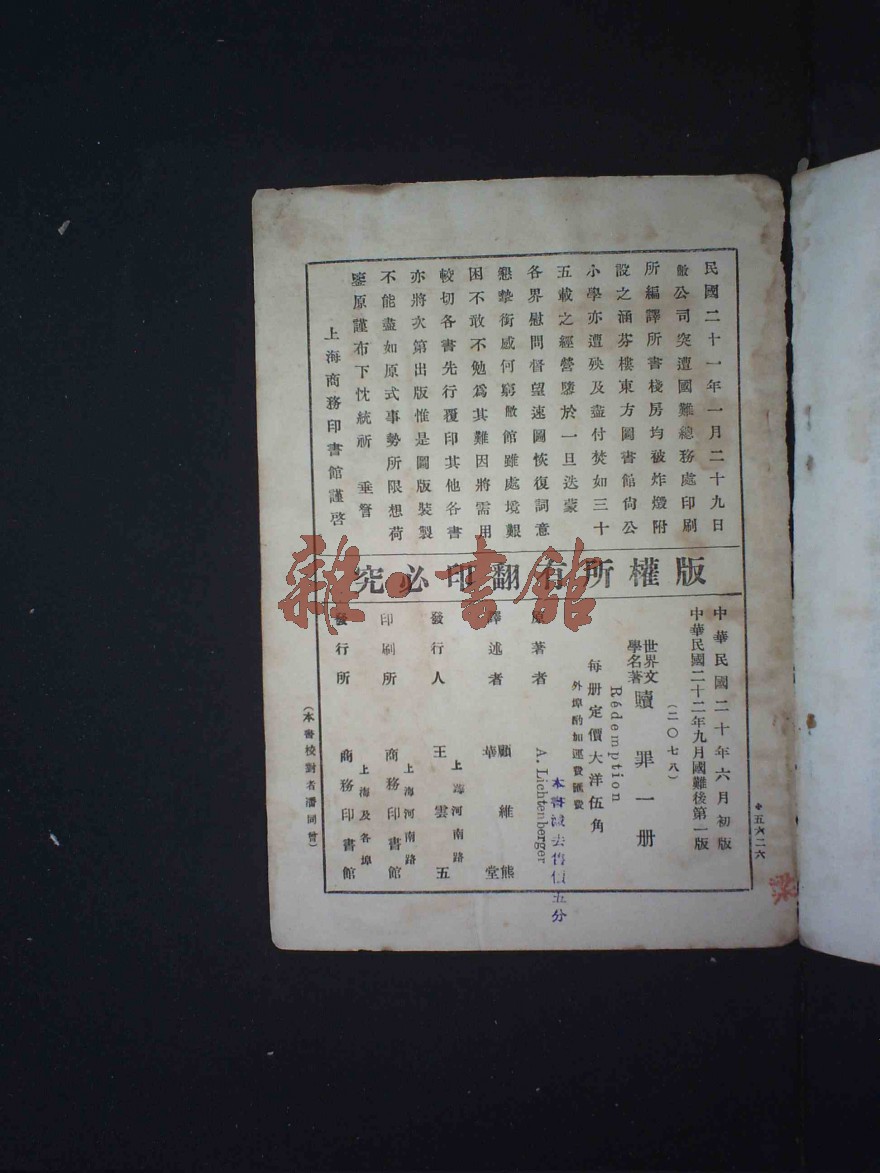 民國二十一年一月二十九日
敝公司突遭國難總務處印刷
所編譯所書棧房均被炸燬附
設之涵芬樓東方圖書館尙公
小學亦遭殃及盡付焚如三十
五載之經營隳於一旦迭蒙
各界慰問督望速圖恢復詞意
懇摯銜感何窮敝館雖處境艱
困不敢不勉爲其難因將需用
較切各書先行覆印其他各書
亦將次第出版惟是圖版裝製
不能盡如原式事勢所限想荷
鑒原謹布下忱統祈 垂詧
上海商務印書館謹啓
版權所有翻印必究
雜·書館
*五六二六
中華民國二十年六月初版
中華民國二十二年九月國難後第一版
(二〇七八)
世界文學名著 贖罪一册
Rédemption
每册定價大洋伍角
外埠酌加運費匯費
本書減去售價五分
原著者 A. Lichtenberger
譯述者 顧維熊 華堂
發行人 王雲五
上海河南路
印刷所 商務印書館
上海河南路
發行所 商務印書館
上海及各埠
(本書校對者潘同曾)